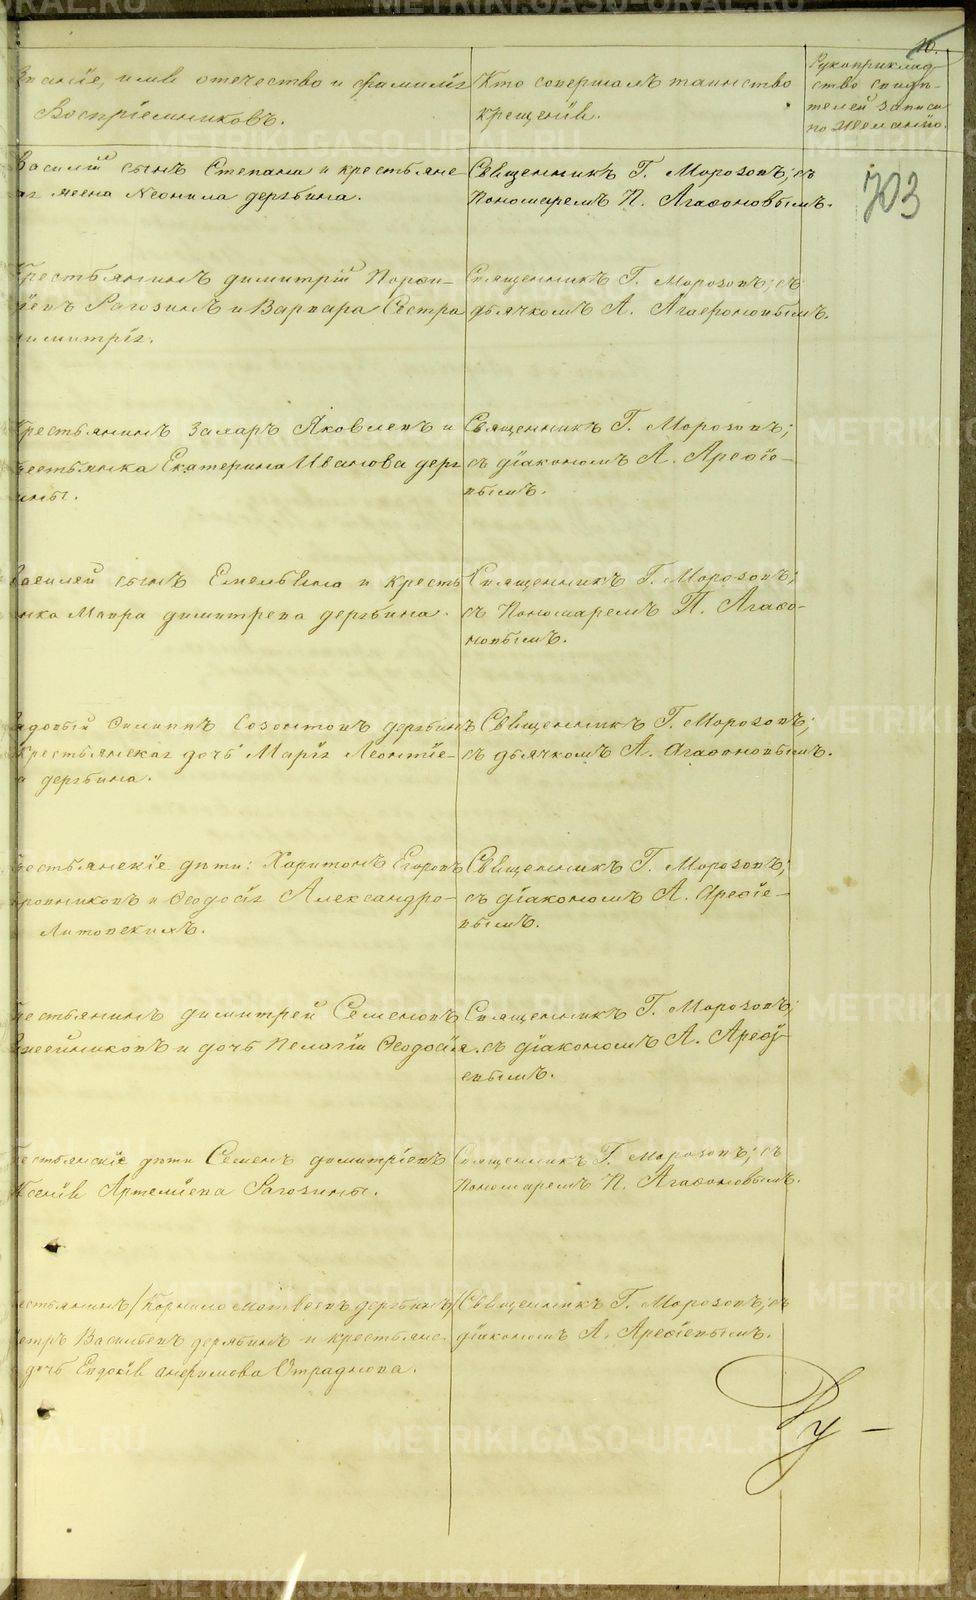 10.
Званіе, имя отечество и фамилія
Воспріемниковъ.
Кто совершалъ таинство
крещенія.
Рукоприклад
ство свидѣ-
телей записи
по желанію.
703
Василій сынъ Степана и крестьянс
жена Неонила дерябина.
Священникъ Г. Морозовъ; съ
Пономаремъ П. Агафоновымъ.
Крестьянинъ димитрій Порфи-
ріевъ Рагозинъ и Варвара Сестра
димитрія.
Священникъ Г. Морозовъ; съ
дьячкомъ А. Агафоновымъ.
Крестьянинъ Захаръ Яковлевъ и
крестьянка Екатерина Иванова деря
бины.
Священникъ Г. Морозовъ;
съ діакономъ А. Арефіе-
вымъ.
Василей сынъ Емельяна и Кресть
янка Мавра димитрева дерябина.
Священникъ Г. Морозовъ;
съ Пономаремъ П. Агафо-
новымъ.
Филиппъ Созонтовъ дерябинъ
Крестьянская дочь Марія Леонтіе-
ва дерябина.
Священникъ Г. Морозовъ;
съ дьячкомъ А. Агафоновымъ.
Крестьянскіе дѣти: Харитонъ Егоровъ
и Феодосія Александро-
Литовскихъ.
Священникъ Г. Морозовъ;
съ діакономъ А. Арефіе-
вымъ.
Крестьянинъ димитрей Семеновъ
и дочь Пелагіи Феодосія.
Священникъ Г. Морозовъ;
съ діакономъ А. Арефі-
евымъ.
Крестьянскіе дѣти Семенъ димитріевъ
Ксенія Артеміева Рагозины.
Священникъ Г. Морозовъ; съ
Пономаремъ П. Агафоновымъ.
Крестьянинъ /Корнило Матвеевъ дерябинъ/
Петръ Васильевъ дерябинъ и крестьянс.
дочь Евдокія анфимова Отраднова.
Священникъ Г. Морозовъ, съ
діакономъ А. Арефіевымъ.
Ру -
METRIKI.GASO-URAL.RU